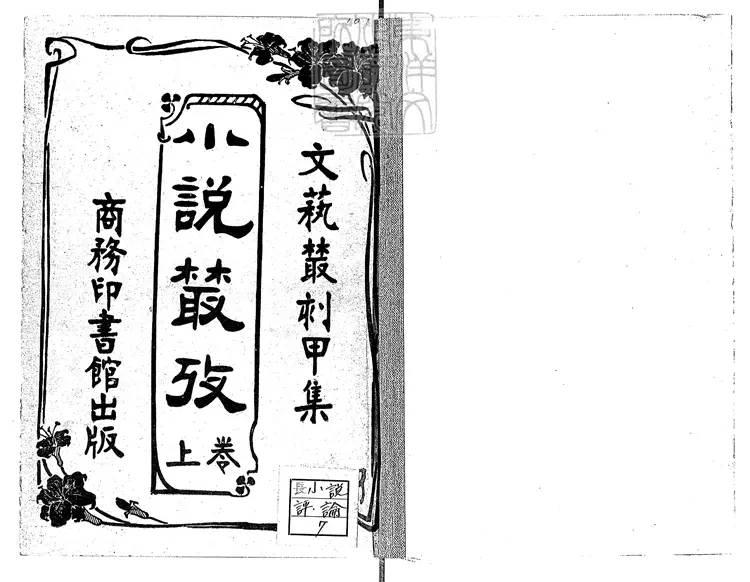 文藝叢刻甲集
小說叢攷
卷上
商務印書館出版
長小說
評論
7